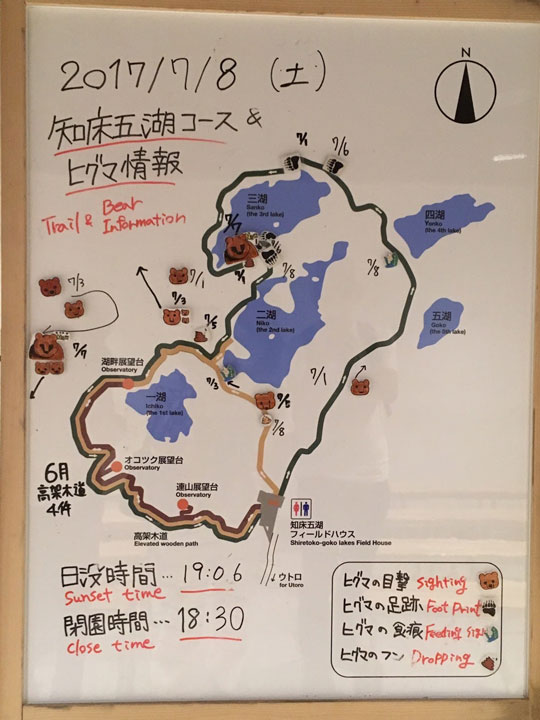 2017/7/8 (土)
N
知床五湖コース &
ヒグマ情報
Trail & Bear Information
7/1
7/6
三湖
Sanko
(the 3rd lake)
7/7
7/1
7/8
四湖
Yonko
(the 4th lake)
7/8
五湖
Goko
(the 5th lake)
二湖
Niko
(the 2nd lake)
7/3
7/7
7/1
7/3
7/5
7/3
7/1
7/8
湖畔展望台
Observatory
一湖
Ichiko
(the 1st lake)
オコツク展望台
Observatory
連山展望台
Observatory
6月
高架木道
4件
高架木道
Elevated wooden path
知床五湖
フィールドハウス
Shiretoko-goko lakes Field House
ウトロ
for Utoro
日没時間…19:06
sunset time
閉園時間…18:30
close time
ヒグマの目撃 Sighting
ヒグマの足跡 Foot Print
ヒグマの食痕 Feeding sign
ヒグマのフン Dropping